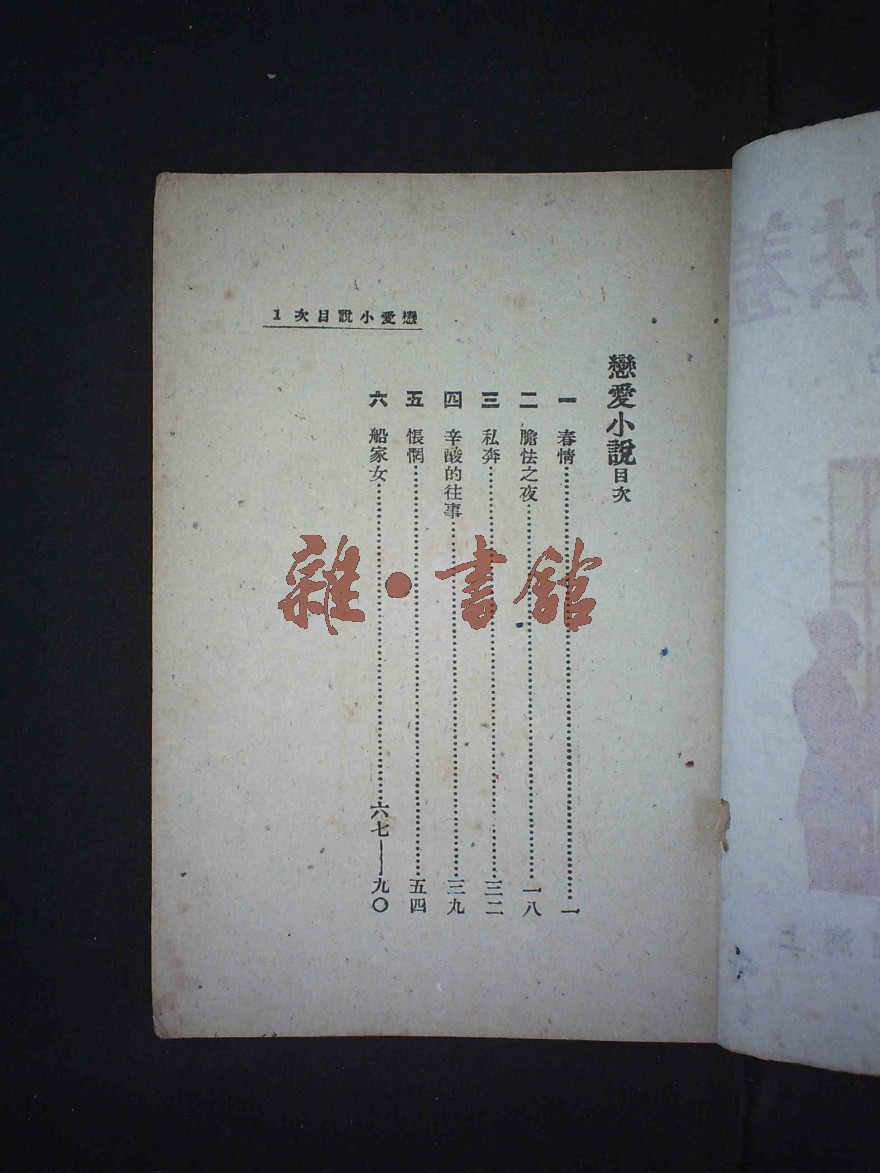 戀愛小說目次
一 春情……一
二 膽怯之夜……一八
三 私奔……三二
四 辛酸的往事……三九
五 悵惘……五四
六 船家女……六七——九〇
戀愛小說目次 1
雜·書館